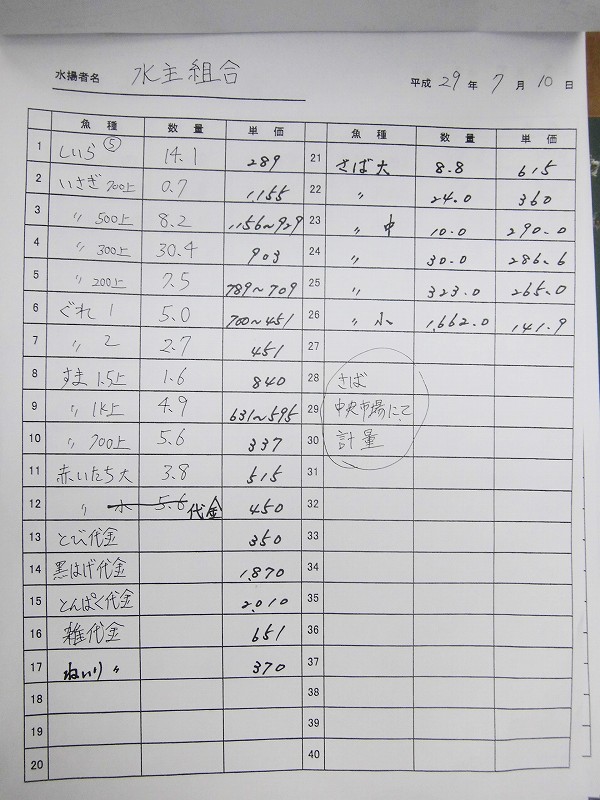 水揚者名 水主組合
平成 29 年 7 月 10 日
魚種 数量 単価 魚種 数量 単価
1 しいら ⑤ 14.1 289
2 いさぎ 700上 0.7 1,155
3 〃 500上 8.2 1,156~929
4 〃 300上 30.4 903
5 〃 200上 7.5 789~709
6 ぐれ 1 5.0 700~451
7 〃 2 2.7 451
8 すま 1.5上 1.6 840
9 〃 1K上 4.9 631~595
10 〃 700上 5.6 337
11 赤いたち大 3.8 515
12 〃 小 5.6 代金 450
13 とび代金 350
14 黒はげ代金 1,870
15 とんぱく代金 2,010
16 雑代金 651
17 ねいり 〃 370
18
19
20
21 さば大 8.8 615
22 〃 24.0 360
23 〃 中 10.0 290.0
24 〃 30.0 286.6
25 〃 323.0 265.0
26 〃 小 1,662.0 141.9
27
28 さば
29 中央市場にて
30 計量
31
32
33
34
35
36
37
38
39
40